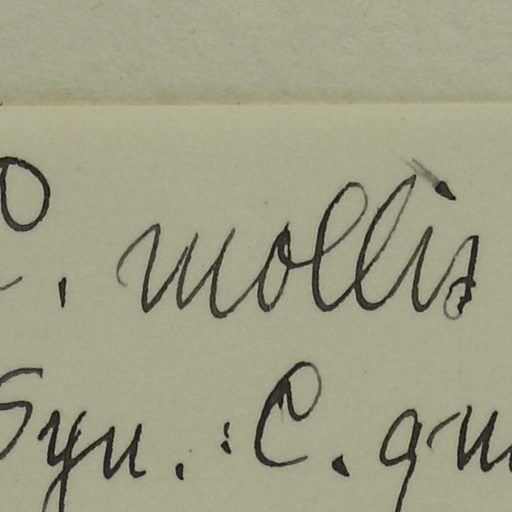 C. mollis
Syn.: C. gm